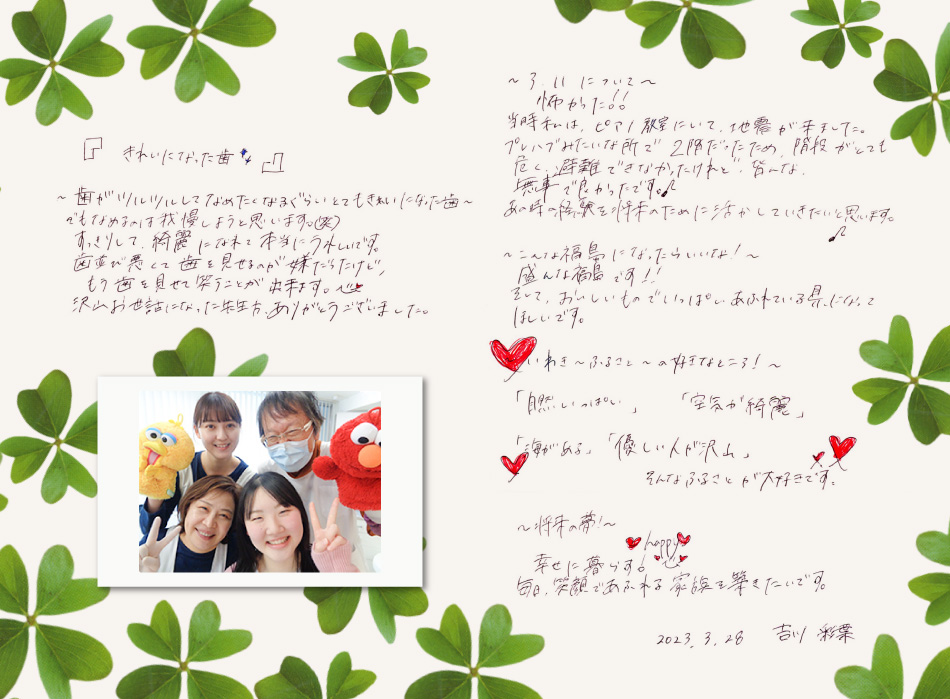 『きれいになった歯』
〜歯がツルツルしてなめたくなるぐらいとてもきれいになった歯〜
でもなめるのは我慢しようと思います。(笑)
すっきりして、綺麗になれて本当にうれしいです。
歯並び悪くて歯を見せるのが嫌だったけど、
もう歯を見せて笑うことが出来ます。
沢山お世話になった先生方、ありがとうございました。
〜3.11について〜
怖かった!!
当時私は、ピアノ教室にいて、地震が来ました。
プレハブみたいな所で2階だったため、階段がとても
危く、避難できなかったけれど、皆んな、
無事で良かったです。
あの時の経験を将来のために活かしていきたいと思います。
〜こんな福島になったらいいな!〜
盛んな福島です!!
そして、おいしいものでいっぱいあふれている県になって
ほしいです。
〜いわき〜ふるさと〜の好きなところ!〜
「自然いっぱい」 「空気が綺麗」
「海がある」「優しい人が沢山」
そんなふるさとが大好きです。
〜将来の夢!〜
happy
幸せに暮らす!
毎日、笑顔であふれる家族を築きたいです。
2023.3.28 吉川 彩葉